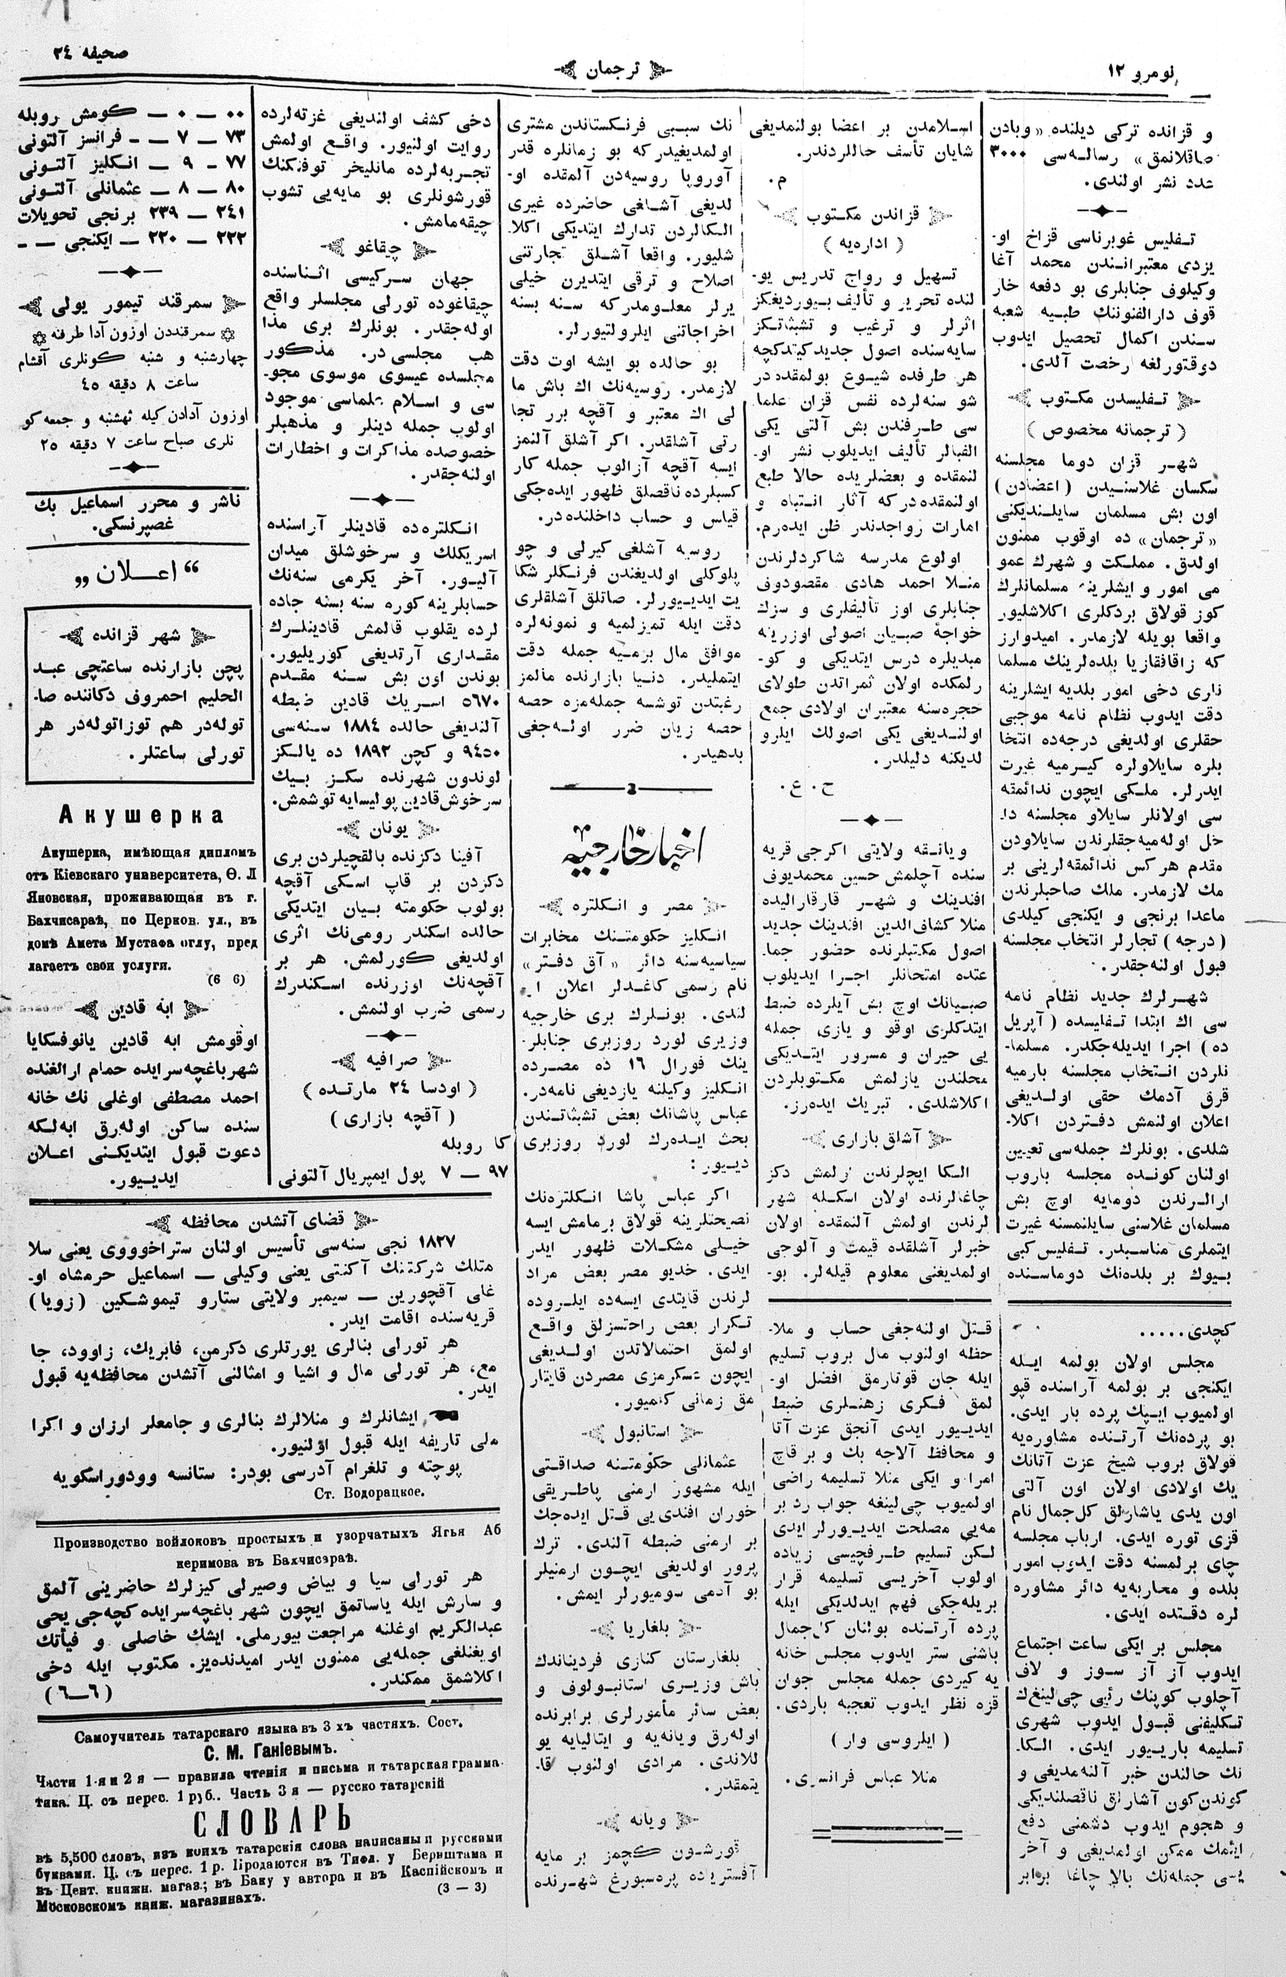 نومرو ۱۲
ترجمان
صحیفه ۲٤
و قزانده ترکی دیلنده «وبادن
صاقلانمق» رسالەسی ۳۰۰۰
عدد نشر اولندی.
تفلیس غوبرناسی قزاخ او-
یزدی معتبراندن محمد آغا
وکیلوف جنابلری بو دفعه خار
قوف دارالفنوننك طبیه شعبه
سندن اکمال تحصیل ایدوب
دوقتورلغه رخصت آلدی.
تفلیسدن مکتوب
( ترجمانه مخصوص )
شهر قزان دوما مجلسنه
سکسان غلاسنیدن (اعضادن)
اون بش مسلمان سایلندیکنی
«ترجمان» ده اوقوب ممنون
اولدق. مملکت و شهرك عمو
می امور و ایشلرینه مسلمانلرك
کوز قولاق بردکلری اکلاشلیور
واقعا بویله لازمدر. امیدوارز
که زاقافقازیا بلدەلرینك مسلما
ناری دخی امور بلدیه ایشلرینه
دقت ایدوب نظام نامه موجبی
حقلری اولدیغی درجەده انتخا
بلره سایلاولره کیرمیه غیرت
ایدرلر. ملکی ایچون ندائمته
سی اولانلر سایلاو مجلسنه دا-
خل اولەمیەجقلرندن سایلاودن
مقدم هرکس ندائمقەلرینی بر
مك لازمدر. ملك صاحبلرندن
ماعدا برنجی و ایکنجی کیلدی
(درجه) تجارلر انتخاب مجلسنه
قبول اولنەجقدر.
شهرلرك جدید نظام نامه
سی اك ابتدا تفلیسده (آپریل
ده) اجرا ایدیلەجکدر. مسلما-
نلردن انتخاب مجلسنه بارمیه
قرق آدمك حقی اولدیغی
اعلان اولنمش دفتردن اکلا-
شلدی. بونلرك جملەسی تعیین
اولنان کونده مجلسه باروب
ارالرندن دومایه اوچ بش
مسلمان غلاسنی سایلنمسنه غیرت
ایتملری مناسبدر. تفلیس کبی
بیوك بر بلدەنك دوماسنده
اسلامدن بر اعضا بولنمدیغی
شایان تأسف حاللردندر.
م.
قزاندن مکتوب
( ادارەیه )
تسهیل و رواج تدریس یو-
لنده تحریر و تألیف بیوردیغکز
اثرلر و ترغیب و تشبثاتکز
سایەسنده اصول جدید کیتدکچه
هر طرفده شیوع بولمقدەدر
شو سنەلرده نفس قزان علما
سی طرفندن بش آلتی یکی
الفبالر تألیف ایدیلوب نشر او-
لنمقده و بعضلریده حالا طبع
اولنمقدەدرکه آثار انتباه و
امارات رواجدندر ظن ایدەرم.
اولوغ مدرسه شاکردلرندن
منلا احمد هادی مقصودوف
جنابلری اوز تألیفلری و سزك
خواجهٔ صبیان اصولی اوزرینه
مبدیلره درس ایتدیکی و کو-
رلمکده اولان ثمراتدن طولای
حجرەسنه معتبران اولادی جمع
اولندیغی یکی اصولك ایلرو
لدیکنه دلیلدر.
ح. ع.
ویاتقه ولایتی اکرجی قریه
سنده آچلمش حسین محمدیوف
افندینك و شهر قارقارالیده
منلا کشاف‌الدین افندینك جدید
اصول مکتبلرنده حضور جما-
عتده امتحانلر اجرا ایدیلوب
صبیانك اوچ بش آیلرده ضبط
ایتدکلری اوقو و یازی جمله
یی حیران و مسرور ایتدیکی
محلندن یازلمش مکتوبلردن
اکلاشلدی. تبریك ایدەرز.
آشلق بازاری
الکا ایچلرندن کزلمش دکز
چاغالرنده اولان اسکله شهر
لرندن اولمش آلنمقده اولان
خبرلر آشلقده قیمت و آلوجی
اولمدیغنی معلوم قیلەلر. بو-
نك سببی فرنکستاندن مشتری
اولمدیغیدرکه بو زمانلره قدر
آوروپا روسیەدن آلمقده او-
لدیغی آشلغی حاضرده غیری
الکالردن تدارك ایتدیکی اکلا-
شلیور. واقعا آشلق تجارتنی
اصلاح و ترقی ایتدیرن خیلی
یرلر معلومدرکه سنه بسنه
اخراجاتنی ایلرولتیورلر.
بو حالده بو ایشه اوت دقت
لازمدر. روسیەنك اك باش ما
لی اك معتبر و آقچه برر تجا
رتی آشلقدر. اکر آشلق آلنمز
ایسه آقچه آزالوب جمله کار
کسبلرده ناقصلق ظهور ایدەجکی
قیاس و حساب داخلندەدر.
روسیه آشلغی کیرلی و چو
پلوکلی اولدیغندن فرنکلر شکا
یت ایدیورلر. صاتلق آشلقلری
دقت ایله تمزلمیه و نمونەلره
موافق مال برمیه جمله دقت
ایتملیدر. دنیا بازارنده مالمز
رغبتدن توشسه جملەمزه حصه
حصه زیان ضرر اولەجغی
بدهیدر.
اخبار خارجیه
مصر و انکلتره
انکلیز حکومتنك مخابرات
سیاسیەسنه دائر «آق دفتر»
نام رسمی کاغدلر اعلان ا.
لندی. بونلرك بری خارجیه
وزیری لورد روزبری جنابلر-
ینك فورال ۱٦ ده مصرده
انکلیز وکیلنه یازدیغی نامەدر.
عباس پاشانك بعض تشبثاتندن
بحث ایدەرك لورد روزبری
دیور:
اکر عباس پاشا انکلترەنك
نصیحتلرینه قولاق برمامش ایسه
خیلی مشکلات ظهور ایدر
ایدی. خدیو مصر بعض مراد
لرندن قایتدی ایسەده ایلروده
تکرار بعض راحتسزلق واقع
اولمق احتمالاتدن اولدیغی
ایچون عسکرمزی مصردن قایتار
مق زمانی کلمیور.
استانبول
عثمانلی حکومتنه صداقتی
ایله مشهور ارمنی پاطریقی
خوران افندی‌یی قتل ایدەجك
بر ارمنی ضبطه آلندی. ترك
پرور اولدیغی ایچون ارمنیلر
بو آدمی سومیورلر ایمش.
بلغاریا
بلغارستان کنازی فردیناندك
باش وزیری استانبولوف و
بعض سائر مأمورلری برابرنده
اولەرق ویانەیه و ایتالیایه یو
للاندی. مرادی اولنوب قا-
یتمقدر.
ویانه
قورشون کچمز بر مایه
آفستریاده پرەسبورغ شهرنده
دخی کشف اولندیغی غزتەلرده
روایت اولنیور. واقع اولمش
تجربەلرده مانلیخر توفنکنك
قورشونلری بو مایەیی تشوب
چیقەمامش.
چیقاغو
جهان سرکیسی اثناسنده
چیقاغوده تورلی مجلسلر واقع
اولەجقدر. بونلرك بری مذا
هب مجلسی‌در. مذکور
مجلسده عیسوی موسوی مجو-
سی و اسلام علماسی موجود
اولوب جمله دینلر و مذهبلر
خصوصده مذاکرات و اخطارات
اولنەجقدر.
انکلترەده قادینلر آراسنده
اسریکلك و سرخوشلق میدان
آلیور. آخر یکرمی سنەنك
حسابلرینه کوره سنه بسنه جاده
لرده یقلوب قالمش قادینلرك
مقداری آرتدیغی کوریلیور.
بوندن اون بش سنه مقدم
۵٦۷۰ اسریك قادین ضبطه
آلندیغی حالده ۱۸۸٤ سنەسی
۹٤۵۰ و کچن ۱۸۹۲ ده یالکز
لوندون شهرنده سکز بیك
سرخوش قادین پولیسایه توشمش.
یونان
آفینا دکزنده بالقچیلردن بری
دکزدن بر قاپ اسکی آقچه
بولوب حکومته بیان ایتدیکی
حالده اسکندر رومی‌نك اثری
اولدیغی کورلمش. هر بر
آقچەنك اوزرنده اسکندرك
رسمی ضرب اولنمش.
صرافیه
( اودسا ۲٤ مارتده )
( آقچه بازاری )
کا روبله
۹۷ — ۷ پول ایمپریال آلتونی
۰۰ — ۰ — کومش روبله
۷۳ — ۷ — فرانسز آلتونی
۷۷ — ۹ — انکلیز آلتونی
۸۰ — ۸ — عثمانلی آلتونی
۲٤۱ — ۲۳۹ برنجی تحویلات
۲۲۲ — ۲۲۰ — ایکنجی — -
سمرقند تیمور یولی
سمرقنددن اوزون آدا طرفنه
چهارشنبه و شنبه کونلری آقشام
ساعت ۸ دقیقه ٤۵
اوزون آدادن کیله نهشنبه و جمعه کو
نلری صباح ساعت ۷ دقیقه ۲۵
ناشر و محرر اسماعیل بك
غصپرنسکی.
“ اعلان „
شهر قزانده
پچن بازارنده ساعتچی عبد
الحلیم احمروف دکاننده صا-
تولەدر هم توزاتولەدر هر
تورلی ساعتلر.
Акушерка
Акушерка, имѣющая дипломъ
отъ Кіевскаго университета, Ѳ. Л
Яновская, проживающая въ г.
Бахчисараѣ, по Церков. ул., въ
домѣ Амета Мустафа оглу, пред
лагаетъ свои услуги.
(6 6)
ابه قادین
اوقومش ابه قادین یانوفسکایا
شهر باغچه‌سرایده حمام ارالغنده
احمد مصطفی اوغلی نك خانه
سنده ساکن اولەرق ابەلکه
دعوت قبول ایتدیکنی اعلان
ایدیور.
قضای آتشدن محافظه
۱۸۲۷ نجی سنەسی تأسیس اولنان ستراخوووی یعنی سلا
متلك شرکتنك آکنتی یعنی وکیلی — اسماعیل حرمشاه او-
غلی آقچورین — سیمبر ولایتی ستارو تیموشکین (زویا)
قریەسنده اقامت ایدر.
هر تورلی بنالری یورتلری دکرمن، فابریك، زاوود، جا
مع، هر تورلی مال و اشیا و امثالنی آتشدن محافظەیه قبول
ایدر.
ایشانلرك و منلالرك بنالری و جامعلر ارزان و اکرا
ملی تاریفه ایله قبول اولنیور.
پوچته و تلغرام آدرسی بودر: ستانسه وودوراسکویه
Ст. Водорацкое.
Производство войлоковъ простыхъ и узорчатыхъ Ягья Аб
керимова въ Бахчисараѣ.
هر تورلی سیا و بیاض وصیرلی کیزلرك حاضرینی آلمق
و سارش ایله یاساتمق ایچون شهر باغچه‌سرایده کچه‌جی یحی
عبدالکریم اوغلنه مراجعت بیورملی. ایشك خاصلی و فیأتك
اوبغنلغی جملەیی ممنون ایدر امیدندەیز. مکتوب ایله دخی
اکلاشمق ممکندر. (٦—٦)
Самоучитель татарскаго языка въ 3 хъ частяхъ. Сост.
С. М. Ганіевымъ.
Части 1-я и 2 я — правила чтенія и письма и татарская грамма-
тика. Ц. съ перес. 1 руб.. Часть 3 я — русско татарскій
СЛОВАРЬ
въ 5,500 словъ, изъ коихъ татарскія слова написаны и русскими
буквами. Ц. съ перес. 1 р. Продаются въ Тифл. у Бериштама и
въ Цент. книжн. магаз.; въ Баку у автора и въ Каспійскомъ и
Московскомъ книж. магазинахъ. (3 — 3)
کچدی.....
مجلس اولان بولمه ایله
ایکنجی بر بولمه آراسنده قپو
اولمیوب ایپك پرده بار ایدی.
بو پردەنك آرتنده مشاورەیه
قولاق بروب شیخ عزت آتانك
یك اولادی اولان اون آلتی
اون یدی یاشارلق کل‌جمال نام
قزی توره ایدی. ارباب مجلسه
چای برلمسنه دقت ایدوب امور
بلده و محاربەیه دائر مشاوره
لره دقتده ایدی.
مجلس بر ایکی ساعت اجتماع
ایدوب آز آز سوز و لاف
آچلوب کوپنك رئیی چی‌لینغ‌ك
تکلیفنی قبول ایدوب شهری
تسلیمه باریور ایدی. الکا-
نك حالندن خبر آلنەمدیغی و
کوندن کون آشارلق ناقصلندیکی
و هجوم ایدوب دشمنی دفع
ایتمك ممکن اولمدیغی و آخر
یسی جملەنك بالا چاغا برابر
قتل اولنەجغی حساب و ملا-
حظه اولنوب مال بروب تسلیم
ایله جان قوتارمق افضل او-
لمق فکری زهنلری ضبط
ایدیور ایدی آنجق عزت آتا
و محافظ آلاجه بك و بر قاچ
امرا و ایکی منلا تسلیمه راضی
اولمیوب چی‌لینغه جواب رد بر
مەیی مصلحت ایدیورلر ایدی
لکن تسلیم طرفچیسی زیاده
اولوب آخریسی تسلیمه قرار
بریلەجکی فهم ایدلدیکی ایله
پرده آرتنده بولنان کل‌جمال
باشنی ستر ایدوب مجلس خانه
یه کیردی جمله مجلس جوان
قزه نظر ایدوب تعجبه باردی.
( ایلروسی وار )
منلا عباس فرانسوی.